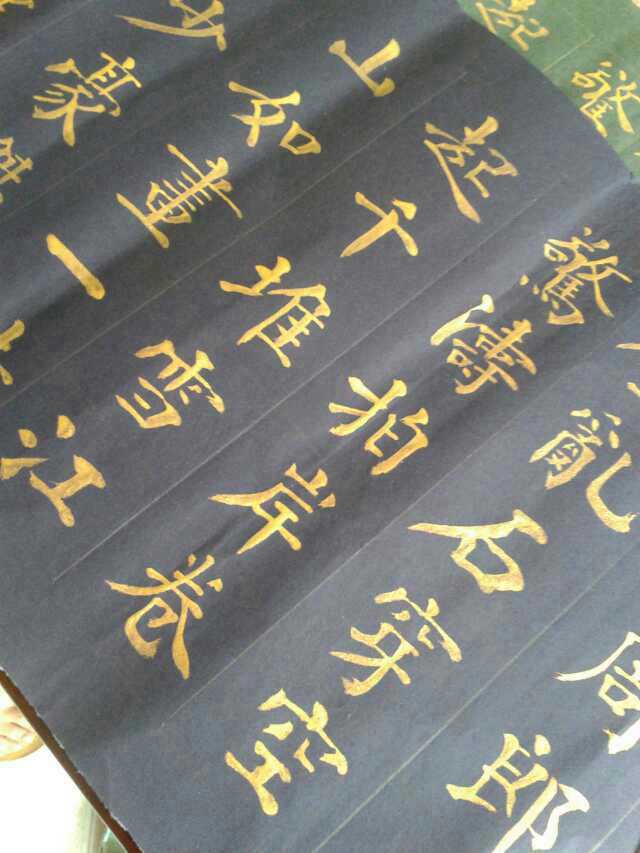 周郎
亂石穿空
驚濤拍岸卷
起千堆雪江
山如畫一
少豪